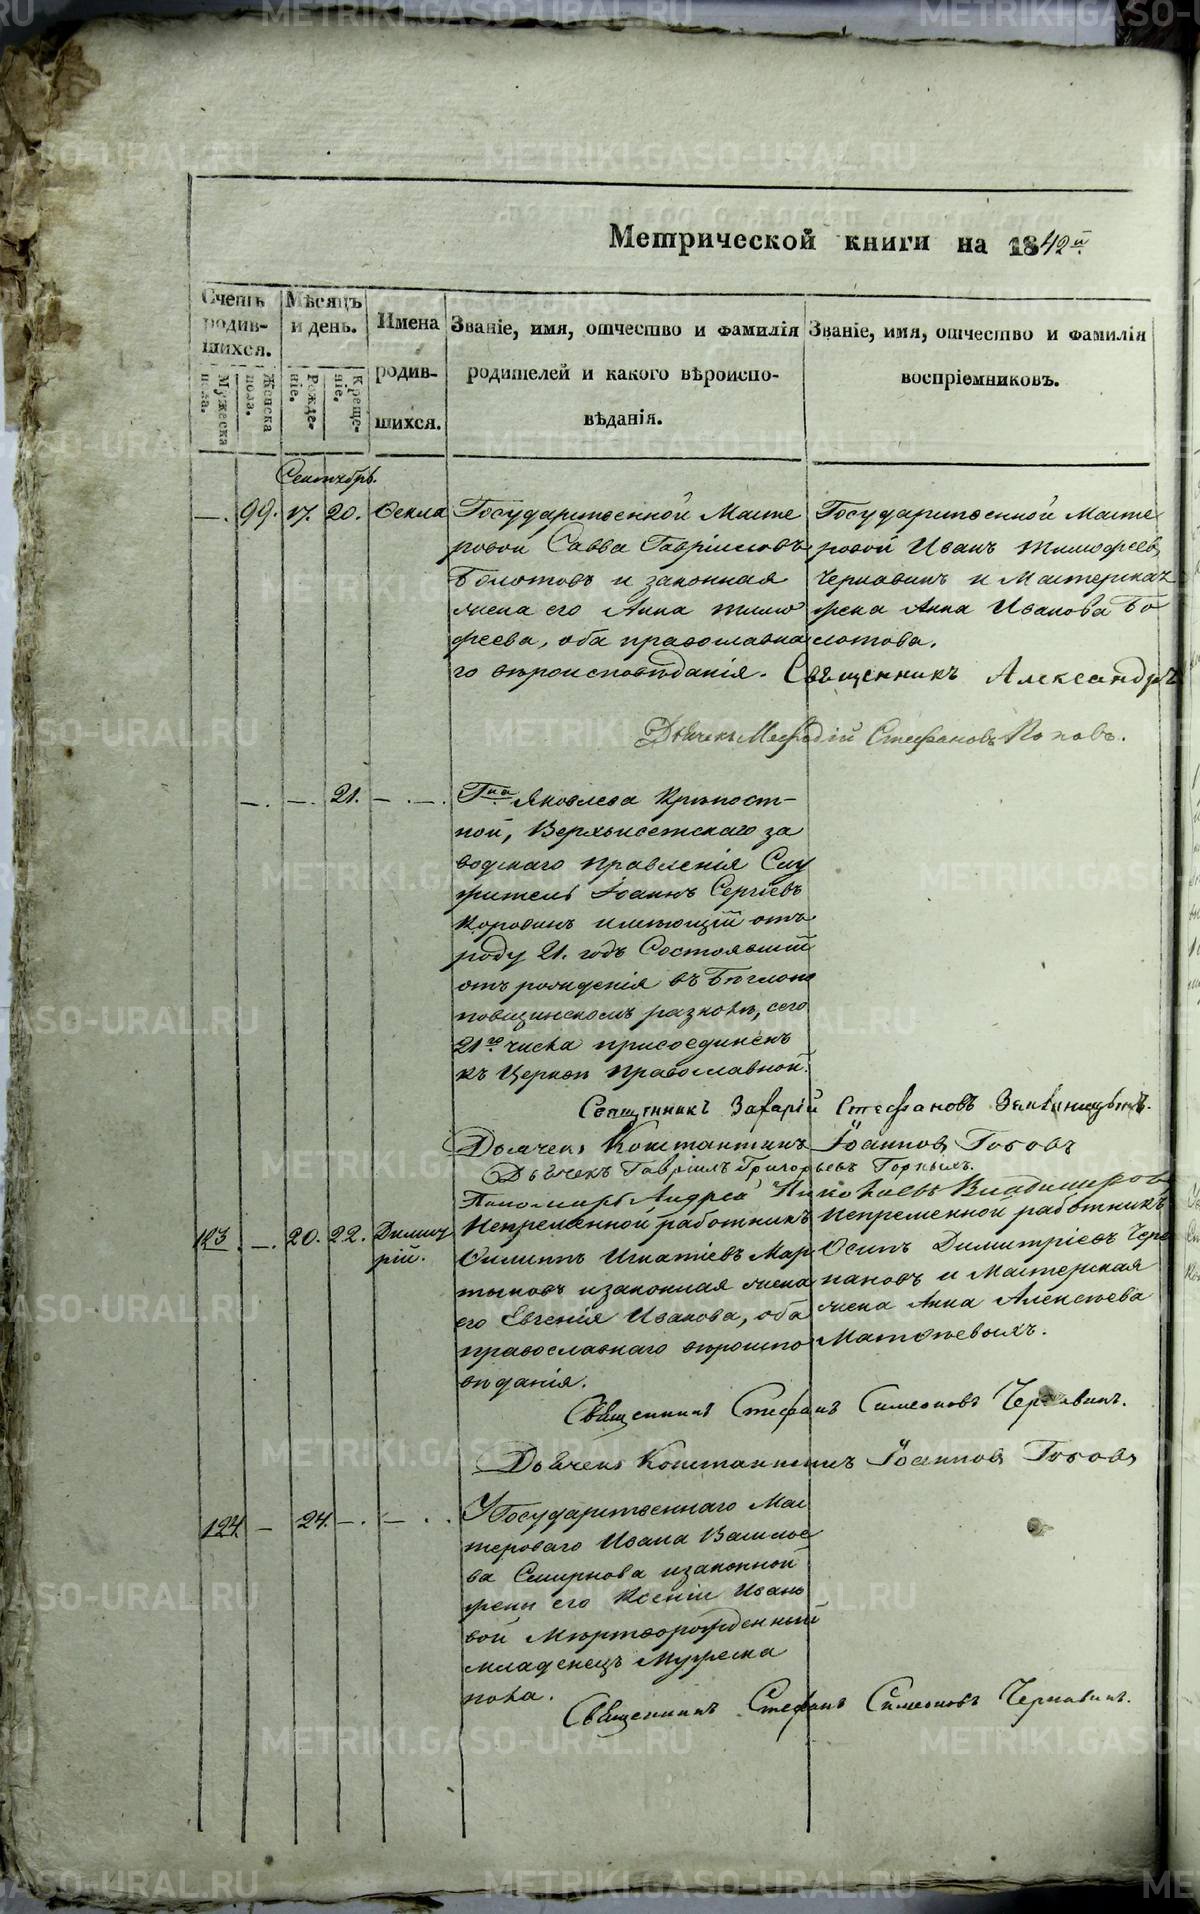 Метрической книги на 1842й
Счетъ родив- шихся.
Мужеска пола.
Женска пола.
Мѣсяцъ и день.
Рожде- ніе.
Креще- ніе.
Имена родив- шихся.
Званіе, имя, отчество и фамилія
родителей и какого вѣроиспо-
вѣданія.
Званіе, имя, отчество и фамилія
воспріемниковъ.
Сентябрь.
—. 99. 17. 20. Фекла
Государственной Масте
ровой Савва Гавріиловъ
Болотовъ и законная
жена его Анна Тимо
феева, оба православна
го вѣроисповѣданія.
Государственной Масте
ровой Иванъ Тимофеевъ
Чернавинъ и Мастерская
жена Анна Иванова Бо
лотова.
Священникъ Александръ
Дьячекъ Мефодій Стефановъ Поповъ.
—. —. 21. —. —.
Гна Яковлева Крѣпост-
ной, Верхъисетскаго за
водскаго правленія Слу
житель Іоаннъ Сергіевъ
Коровинъ имѣющій отъ
роду 21. годъ Состоявшій
отъ рожденія въ Бѣглопо
повщинскомъ расколѣ, сего
21го числа присоединенъ
къ Церкви православной.
Священникъ Захарій Стефановъ
Дьячекъ Константинъ Іоанновъ
Дьячекъ Гавріилъ Григорьевъ Горныхъ.
Пономарь Андрей Николаевъ Владимеровъ
123. —. 20. 22. Димит
рій.
Непременной работникъ
Филиппъ Игнатіевъ Мар
тыновъ и законная жена
его Евгенія Иванова, оба
православнаго вѣроиспо
вѣданія.
Непременной работникъ
Осипъ Димитріевъ Чере
пановъ и Мастерская
жена Анна Алексѣева
Матвѣевыхъ.
Священникъ Стефанъ Симеоновъ Чернавинъ.
Дьячекъ Константинъ Іоанновъ
124. — 24. —. —.
У Государственнаго Мас
тероваго Ивана Василье
ва Смирнова и законной
жены его Ксеніи Ивано
вой Мертворожденный
младенецъ Мужеска
пола.
Священникъ Стефанъ Симеоновъ Чернавинъ.